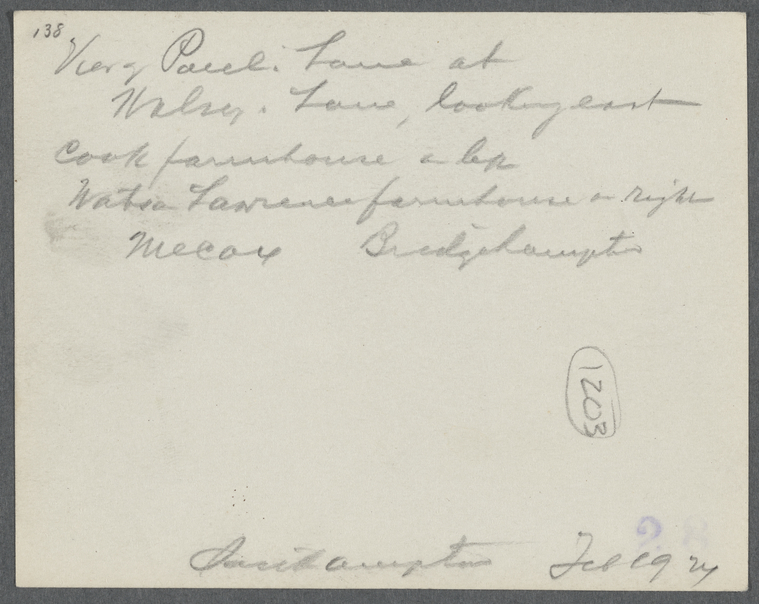 138
View of Paul's Lane at
Halsey's Lane, looking east
Cook farmhouse on left
Watson Lawrence farmhouse on right
Mecox Bridgehampton
1203
2
Southampton Feb 1924